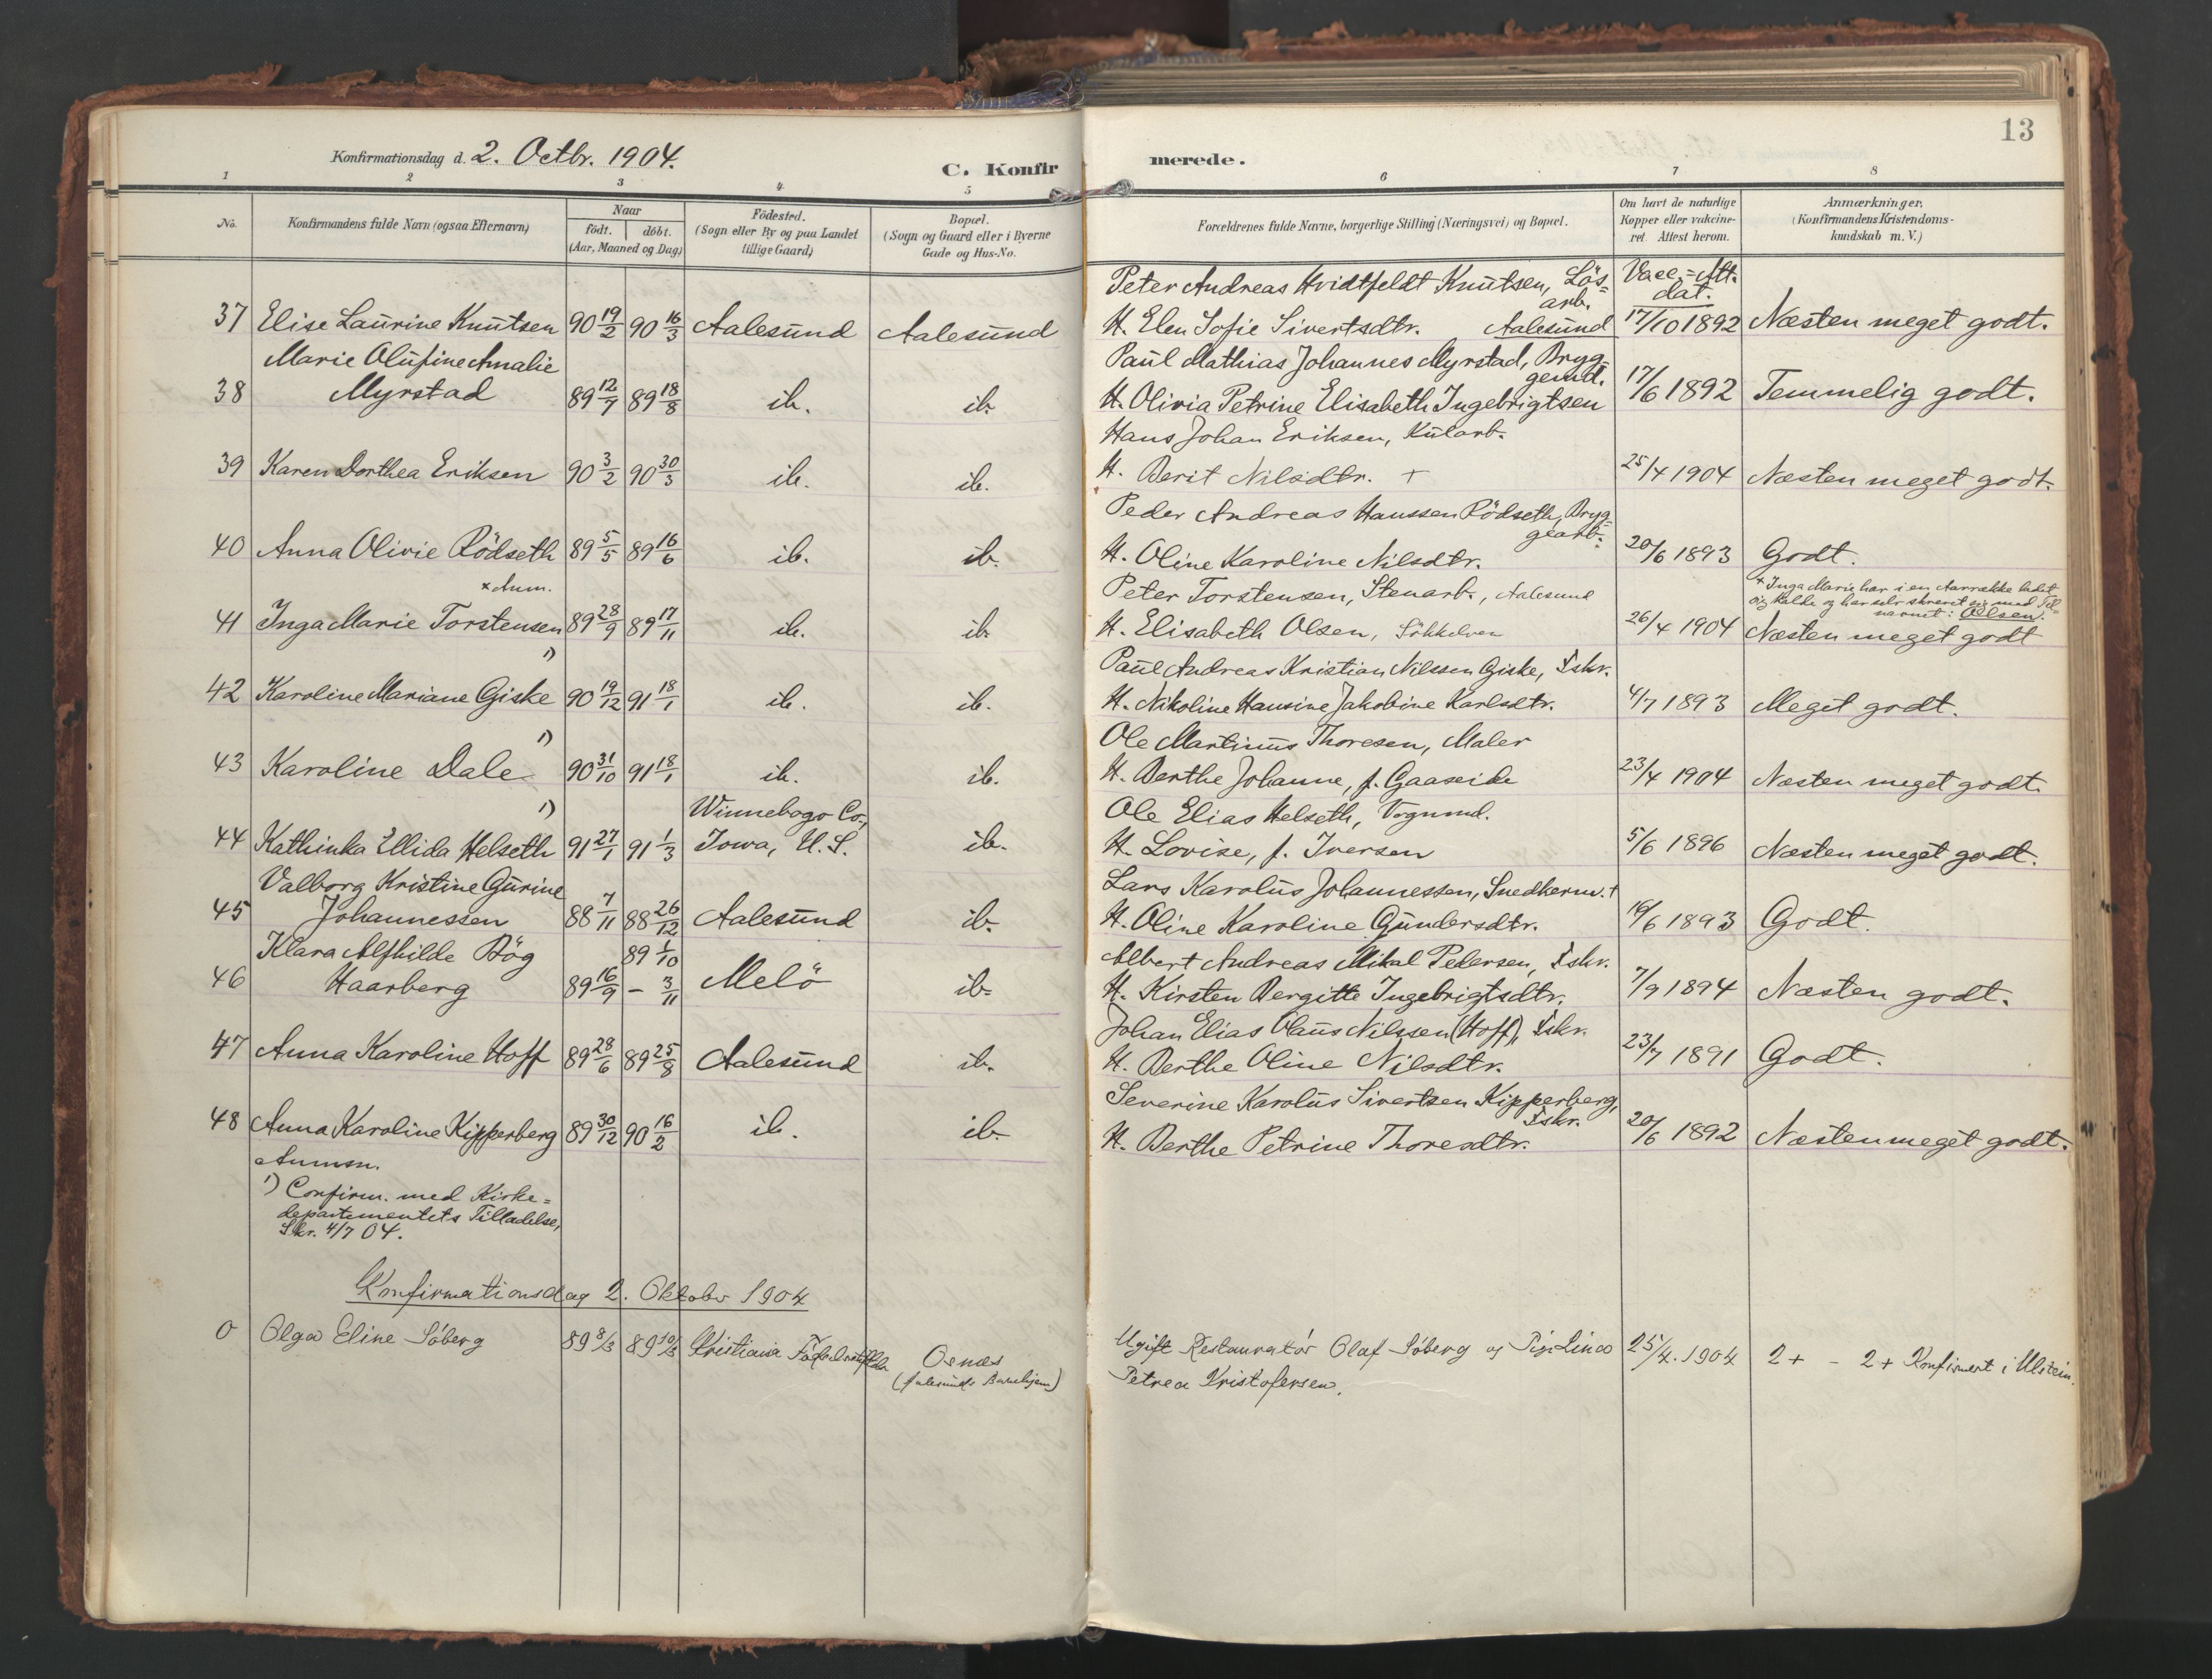 13
Konfirmationsdag d. 2. Octbr. 1904.
C. Konfirmerede.
1 2 3 4 5 6 7 8
No. Konfirmandens fulde Navn (ogsaa Efternavn) Naar født. døbt. (Aar, Maaned og Dag) Fødested. (Sogn eller By og paa Landet tillige Gaard) Bopæl. (Sogn og Gaard eller i Byerne Gade og Hus-No. Forældrenes fulde Navne, borgerlige Stilling (Næringsvei) og Bopæl. Om havt de naturlige Kopper eller vakcineret. Attest herom. Anmærkninger. (Konfirmandens Kristendomskundskab m. V.)
Peter Andreas Hvidtfeldt Knutsen, Løs- Vacc.=Att.
arb. dat.
37 Elise Laurine Knutsen 90 19/2 90 16/3 Aalesund Aalesund H. Elen Sofie Sivertsdtr. Aalesund 17/10 1892 Næsten meget godt.
Marie Olufine Amalie Paul Mathias Johannes Myrstad, Bryg-
gemd.
38 Myrstad 89 12/7 89 18/8 ib. ib. H. Olivia Petrine Elisabeth Ingebrigtsen 17/6 1892 Temmelig godt.
Hans Johan Eriksen, Kularb.
39 Karen Dorthea Eriksen 90 3/2 90 30/3 ib. ib. H. Berit Nilsdtr. + 25/4 1904 Næsten meget godt.
Peder Andreas Hanssen Rödseth, Bryg-
gearb.
40 Anna Olivie Rödseth 89 5/5 89 16/6 ib. ib. H. Oline Karoline Nilsdtr. 20/6 1893 Godt.
x Anm. Peter Torstensen, Stenarb., Aalesund x Inga Marie har i en Aarrække ladet
sig kalde og har selv skrevet sig med Til-
navnet: Oelsen.
41 Inga Marie Torstensen 89 28/9 89 17/11 ib. ib. H. Elisabeth Olsen, Søkkelven 26/4 1904 Næsten meget godt
1) Paul Andreas Kristian Nilssen Giske, Fskr.
42 Karoline Mariane Giske 90 19/12 91 18/1 ib. ib. H. Nikoline Hansine Jakobine Karlsdtr. 4/7 1893 Meget godt.
1) Ole Martinus Thoresen, Maler
43 Karoline Dale 90 31/10 91 18/1 ib. ib. H. Berthe Johanne, f. Gaaseide 23/4 1904 Næsten meget godt.
1) Winnebago Co., Ole Elias Helseth, Vognmd.
44 Kathinka Ellida Helseth 91 27/1 91 1/3 Iowa, U.S. ib. H. Lovise, f. Iversen 5/6 1896 Næsten meget godt.
Valborg Kristine Gurine Lars Karolus Johannessen, Snedkerm. +
45 Johannessen 88 7/11 88 26/12 Aalesund ib. H. Oline Karoline Gundersdtr. 19/6 1893 Godt.
Klara Alfhilde Bög 89 1/10 Albert Andreas Mikal Pedersen, Fskr.
46 Haarberg 89 16/9 - 3/11 Melö ib. H. Kirsten Bergitte Ingebrigtsdtr. 7/9 1894 Næsten godt.
Johan Elias Olaus Nilssen (Hoff), Fskr.
47 Anna Karoline Hoff 89 28/6 89 25/8 Aalesund ib. H. Berthe Oline Nilsdtr. 23/7 1891 Godt.
Severine Karolus Sivertsen Kipperberg,
Fskr.
48 Anna Karoline Kipperberg 89 30/12 90 16/2 ib. ib. H. Berthe Petrine Thoresdtr. 20/6 1892 Næsten meget godt.
Anmm.
1) Confirm. med Kirke=
departementets Tilladelse,
Skr. 4/7 04.
Konfirmationsdag 2. Oktober 1904
0 Olga Eline Söberg 89 8/3 89 10/3 Kristiania Ugift Restauratör Olaf Söberg og Pige Lina 25/4. 1904 2+ - 2+ Konfirmert i Ulstein.
(Aalesunds Barnehjem) Petrea Kristofersen.